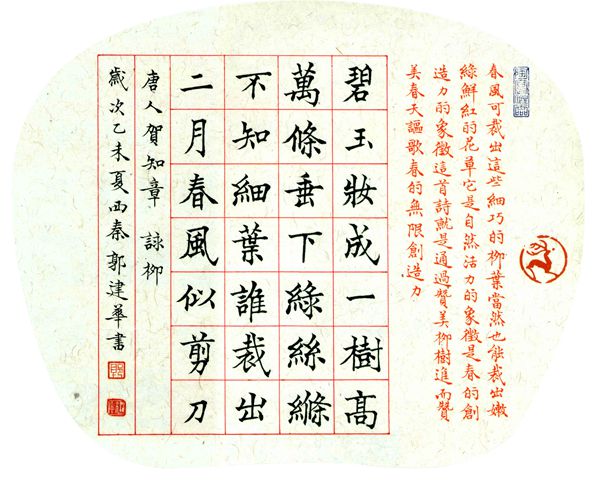 春風可裁出這些細巧的柳葉當然也能裁出嫩
綠鮮紅的花草它是自然活力的象徵是春的創
造力的象徵這首詩就是通過贊美柳樹進而贊
美春天謳歌春的無限創造力
碧玉妝成一樹高
萬條垂下綠絲縧
不知細葉誰裁出
二月春風似剪刀
唐人賀知章 詠柳
歲次乙未夏西秦郭建華書